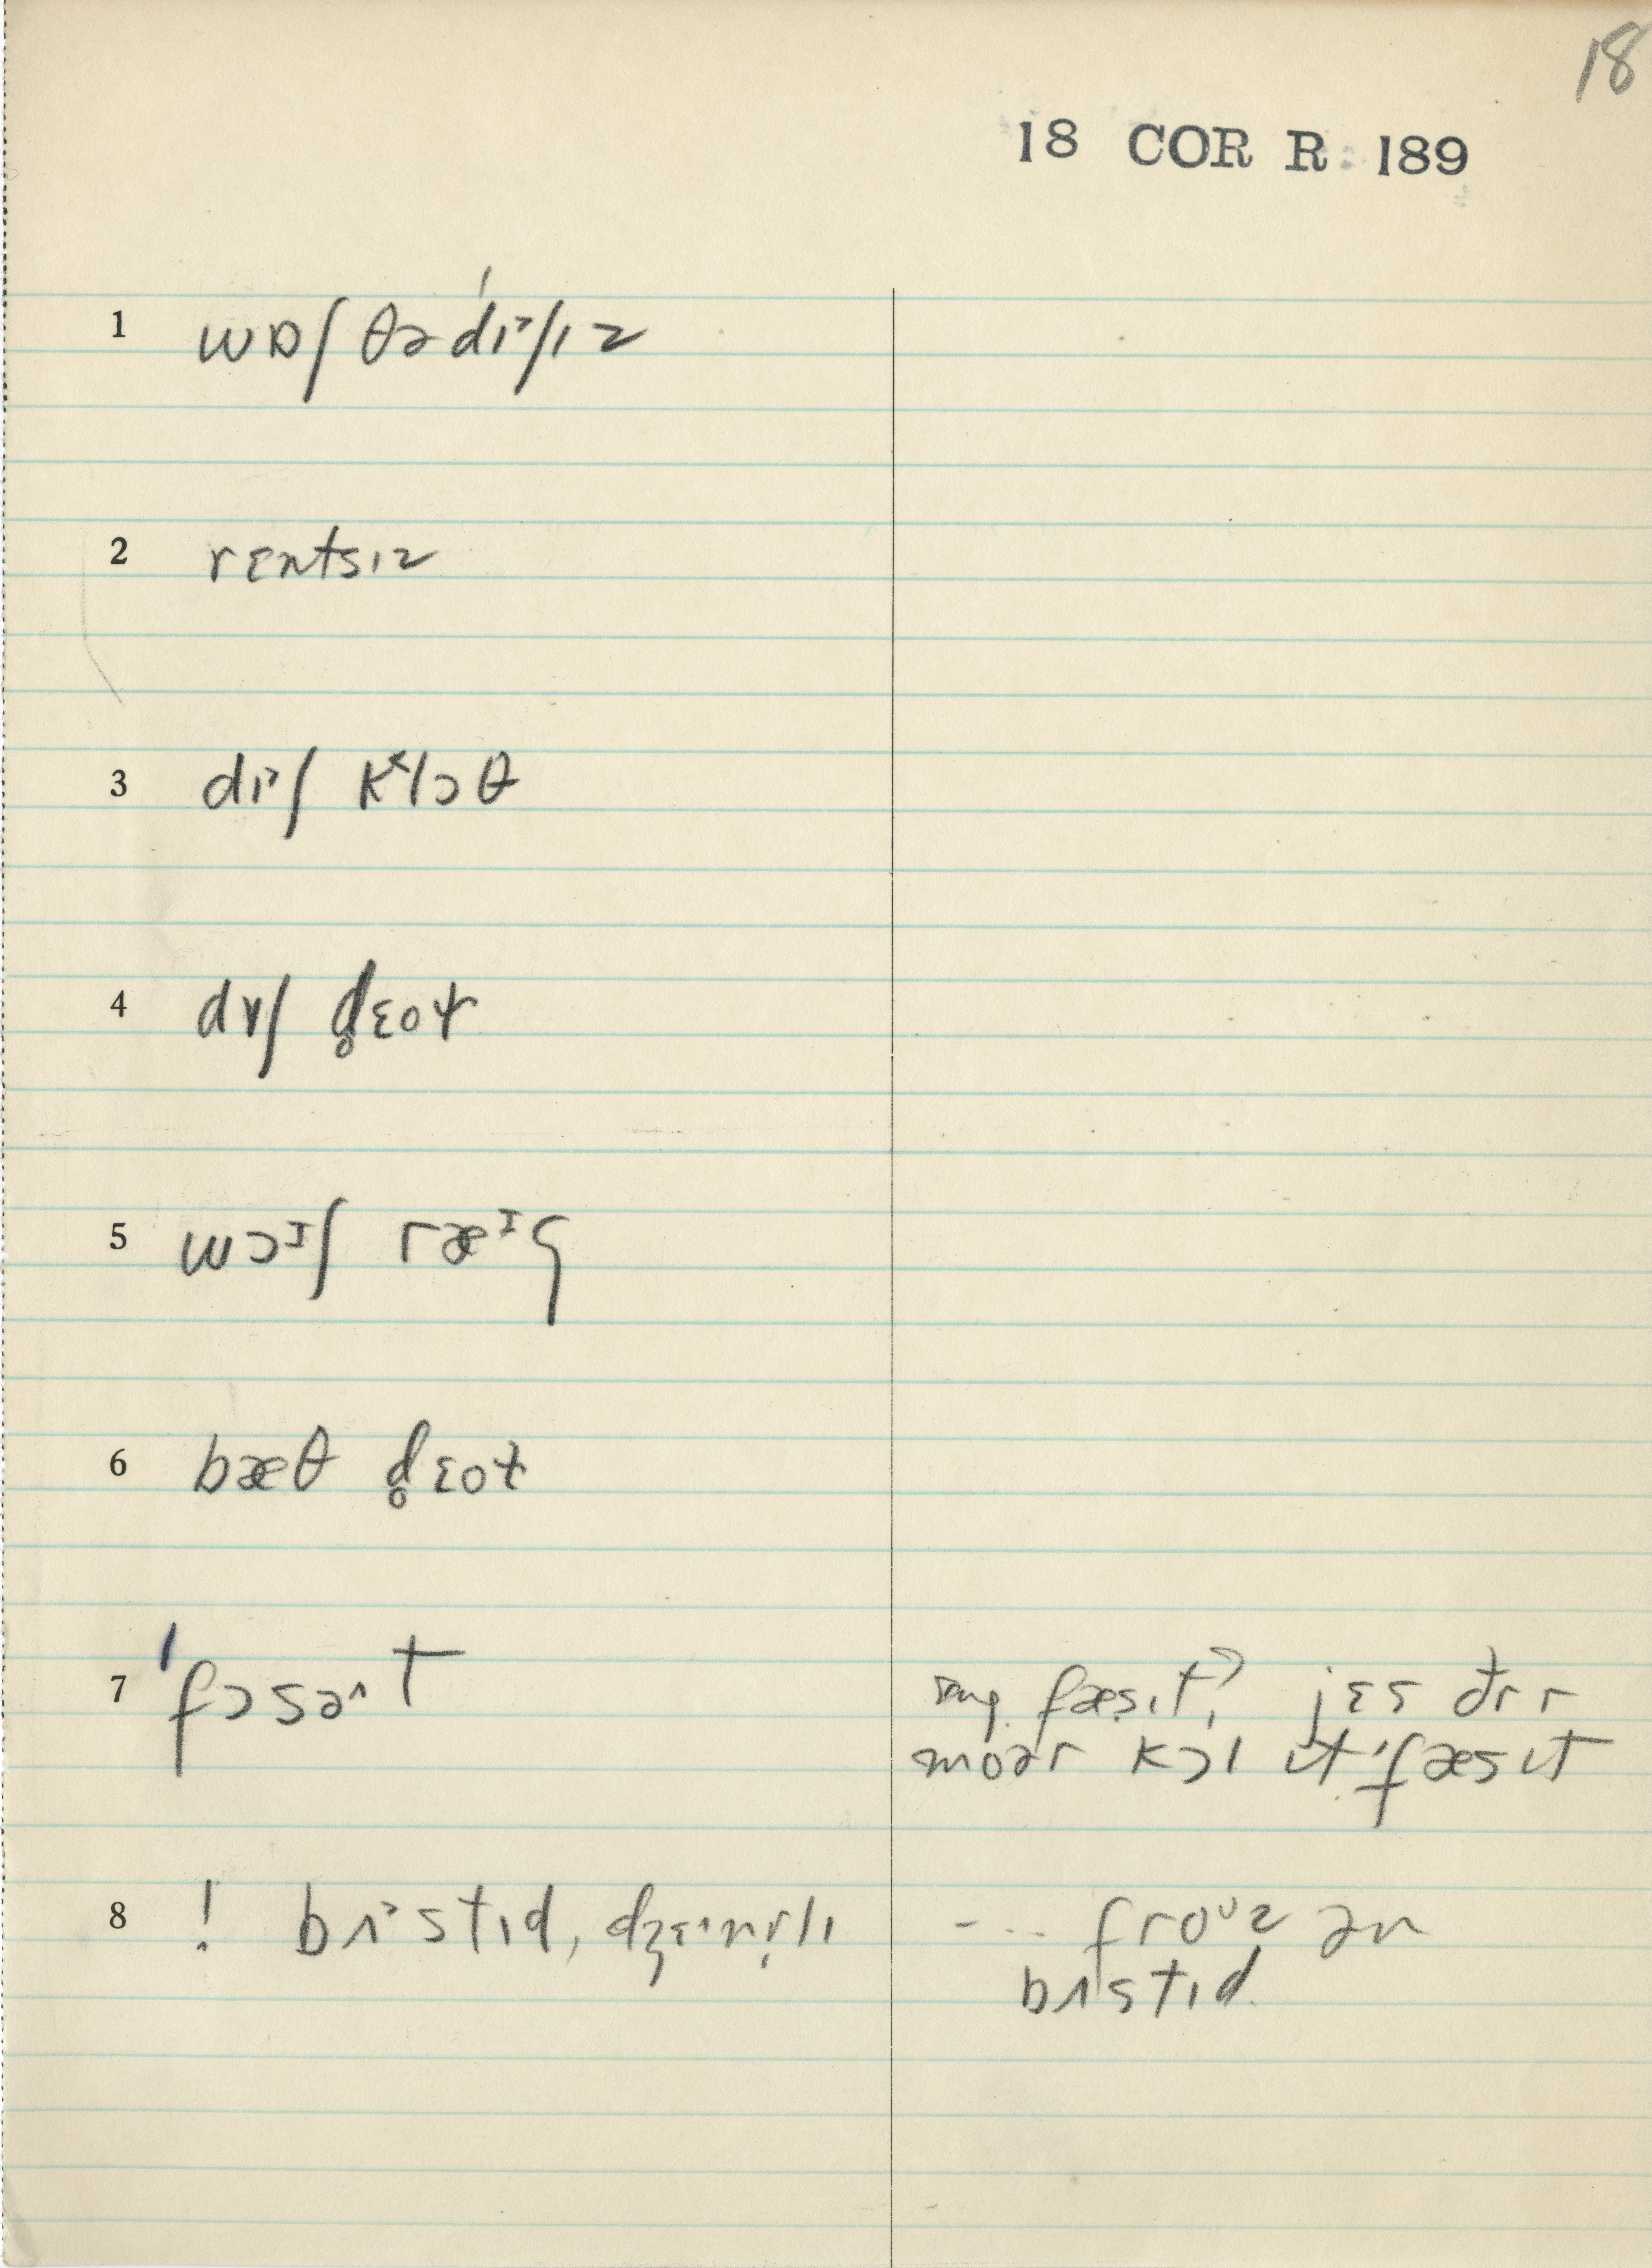 18
18 COR R 189
1 wɒʃ θə ˈdɪˀʃɪz
2 rɛntsɪz
3 dɪˀʃ k˂lɔθ
4 dɪʃ d̥ɛoɫ
5 wɔᶦʃ ræᶦg
6 bæθ d̥ɛoɫ
7 ˈfɔsəˆt
fæsɪt? jɛs ðɪr
moər kɔl ɪt ˈfæsɪt
8 ! bʌ˃stɪd,
- .. froᶸz ən
bʌstɪd